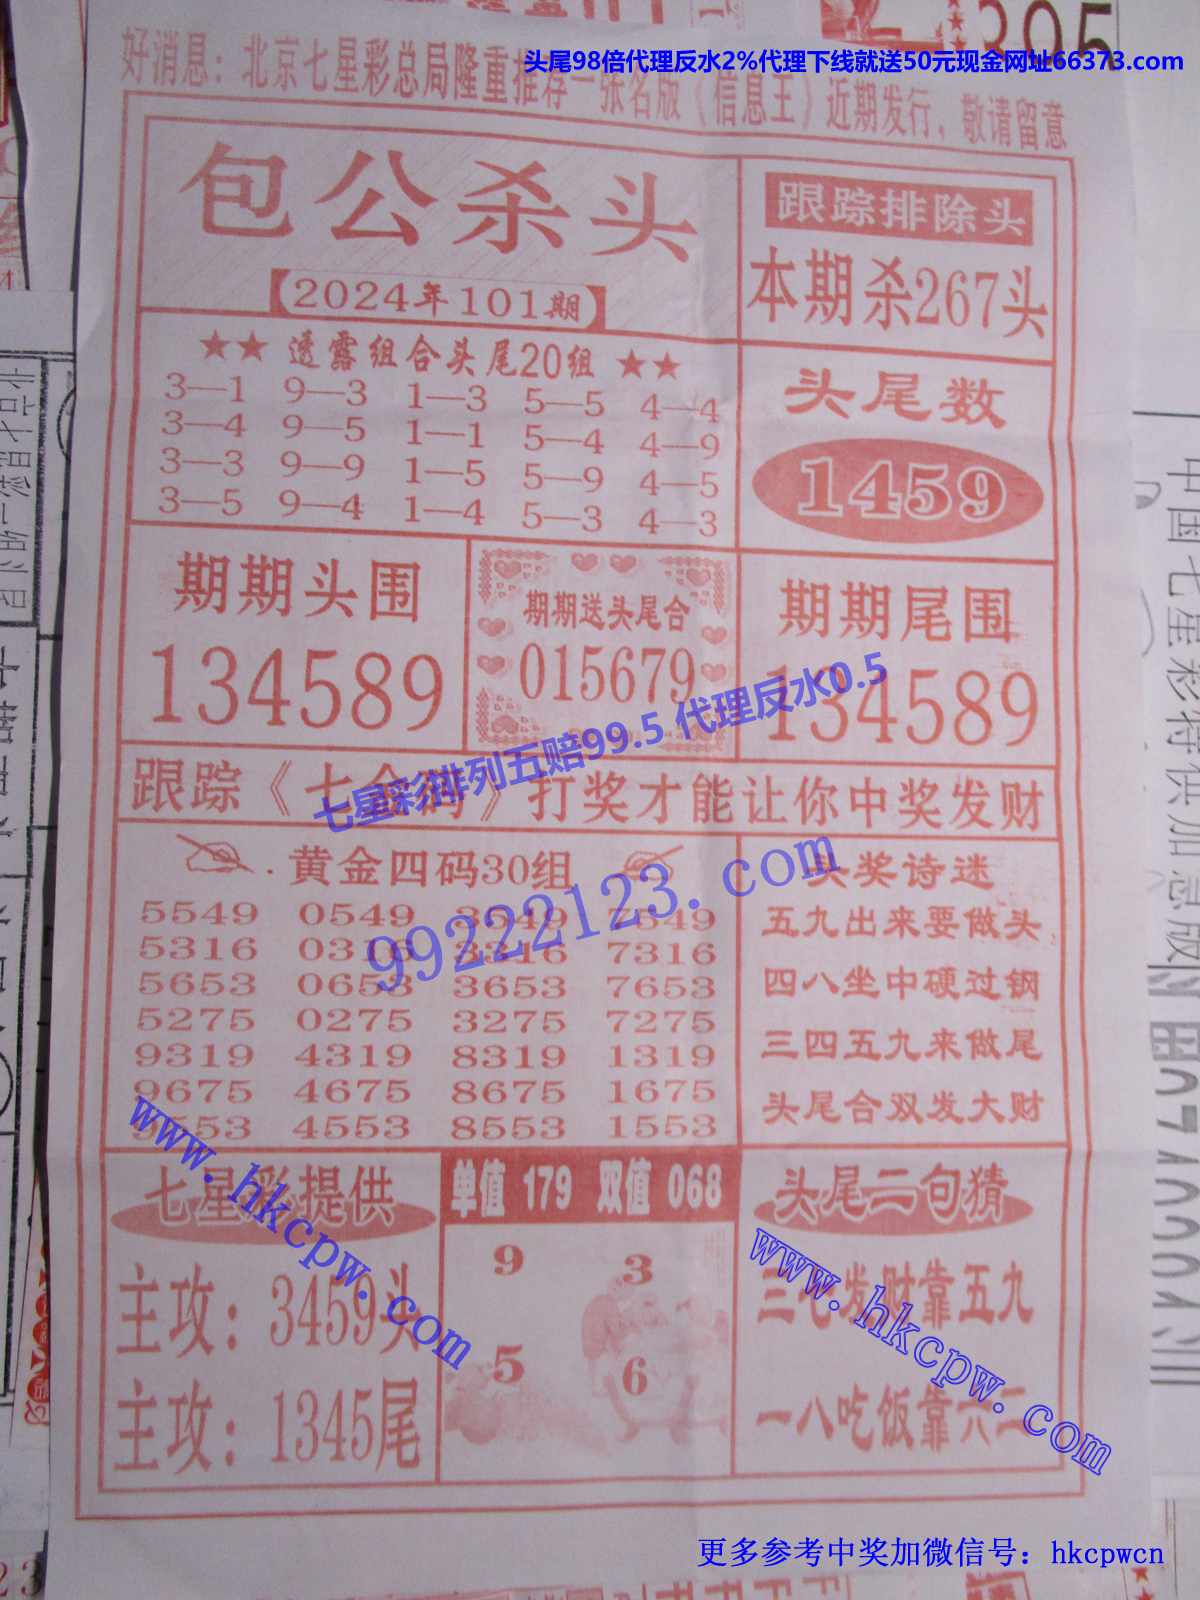 头尾98倍代理反水2%代理下线就送50元现金网址66373.com
好消息：北京七星彩总局隆重推荐一张名版《信息王》近期发行，敬请留意
包公杀头
【2024年101期】
跟踪排除头
本期杀267头
★★ 透露组合头尾20组 ★★
3—1 9—3 1—3 5—5 4—4
3—4 9—5 1—1 5—4 4—9
3—3 9—9 1—5 5—9 4—5
3—5 9—4 1—4 5—3 4—3
头尾数
1459
期期头围
134589
期期送头尾合
015679
期期尾围
134589
七星彩排列五赔99.5 代理反水0.5
打奖才能让你中奖发财
跟踪《七
黄金四码30组
5549 0549 3549 7549
5316 0316 3316 7316
5653 0653 3653 7653
5275 0275 3275 7275
9319 4319 8319 1319
9675 4675 8675 1675
4553 8553 1553
99222123.com
头奖诗迷
五九出来要做头
四八坐中硬过钢
三四五九来做尾
头尾合双发大财
七星彩提供
主攻：3459头
主攻：1345尾
www.hkcpw.com
单值 179 双值 068
9 3
5 6
头尾二句猜
三七发财靠五九
一八吃饭靠六二
www.hkcpw.com
更多参考中奖加微信号：hkcpwcn